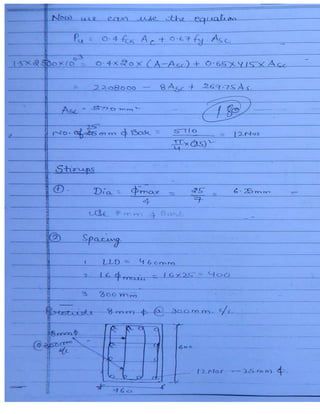 Now we can use the equation
Pu = 0.4 fck Ac + 0.67 fy Asc
1.5×2500×10^03 = 0.4×20×(A-Asc) + 0.65×415×Asc
= 2208000 - 8Asc + 269.75As
Asc = 5710mm²
180
No. of 25 mm ф Bar = 5710 / (π/4 × (25)²) = 12Nos
Stirrups
① Dia = фmax/4 = 25/4 = 6.25mm
use 8mm ф Bars
② Spacing
1 LLD = 460mm
2 16фmain = 16×25 = 400
3 300mm
Provide 8mm ф @ 300mm c/c
8mmф
@300mm
c/c
600
460
12Nos - 25mm ф